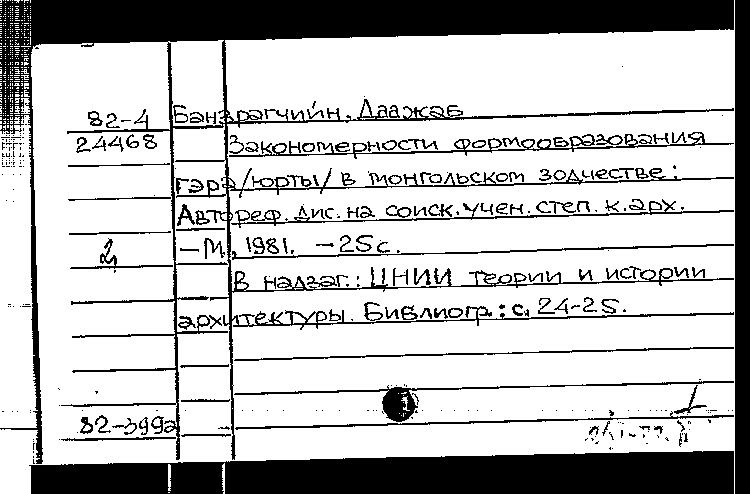 82-4 Банзрагчийн, Даажав
24468 Закономерности формообразования
гэра/юрты/ в монгольском зодчестве:
Автореф. дис. на соиск. учен. степ. к. арх.
2 -М., 1981. -25с.
В надзаг.: ЦНИИ теории и истории
архитектуры. Библиогр.: с. 24-25.
82-399а